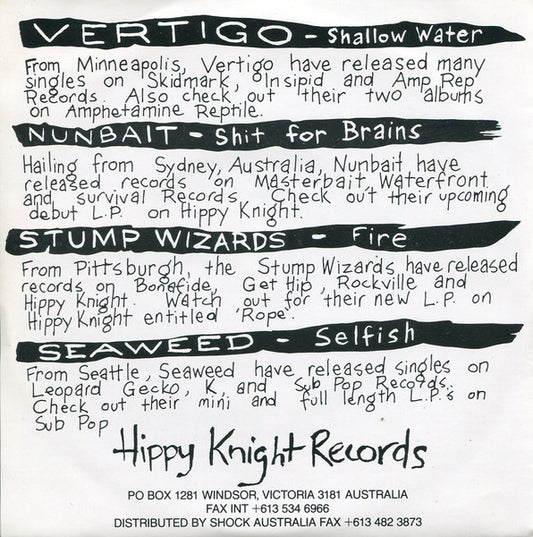 VERTIGO - Shallow Water
From Minneapolis, Vertigo have released many
singles on Skidmark, Insipid and Amp Rep
Records. Also check out their two albums
on Amphetamine Reptile.
NUNBAIT - Shit for Brains
Hailing from Sydney, Australia, Nunbait have
released records on Masterbait, Waterfront
and survival Records. Check out their upcoming
debut L.P. on Hippy Knight.
STUMP WIZARDS - Fire
From Pittsburgh, the Stump Wizards have released
records on Bonafide, Get Hip, Rockville and
Hippy Knight. Watch out for their new L.P. on
Hippy Knight entitled 'Rope'.
SEAWEED - Selfish
From Seattle, Seaweed have released singles on
Leopard Gecko, K, and Sub Pop Records.
Check out their mini and full length L.P.'s on
Sub Pop
Hippy Knight Records
PO BOX 1281 WINDSOR, VICTORIA 3181 AUSTRALIA
FAX INT +613 534 6966
DISTRIBUTED BY SHOCK AUSTRALIA FAX +613 482 3873